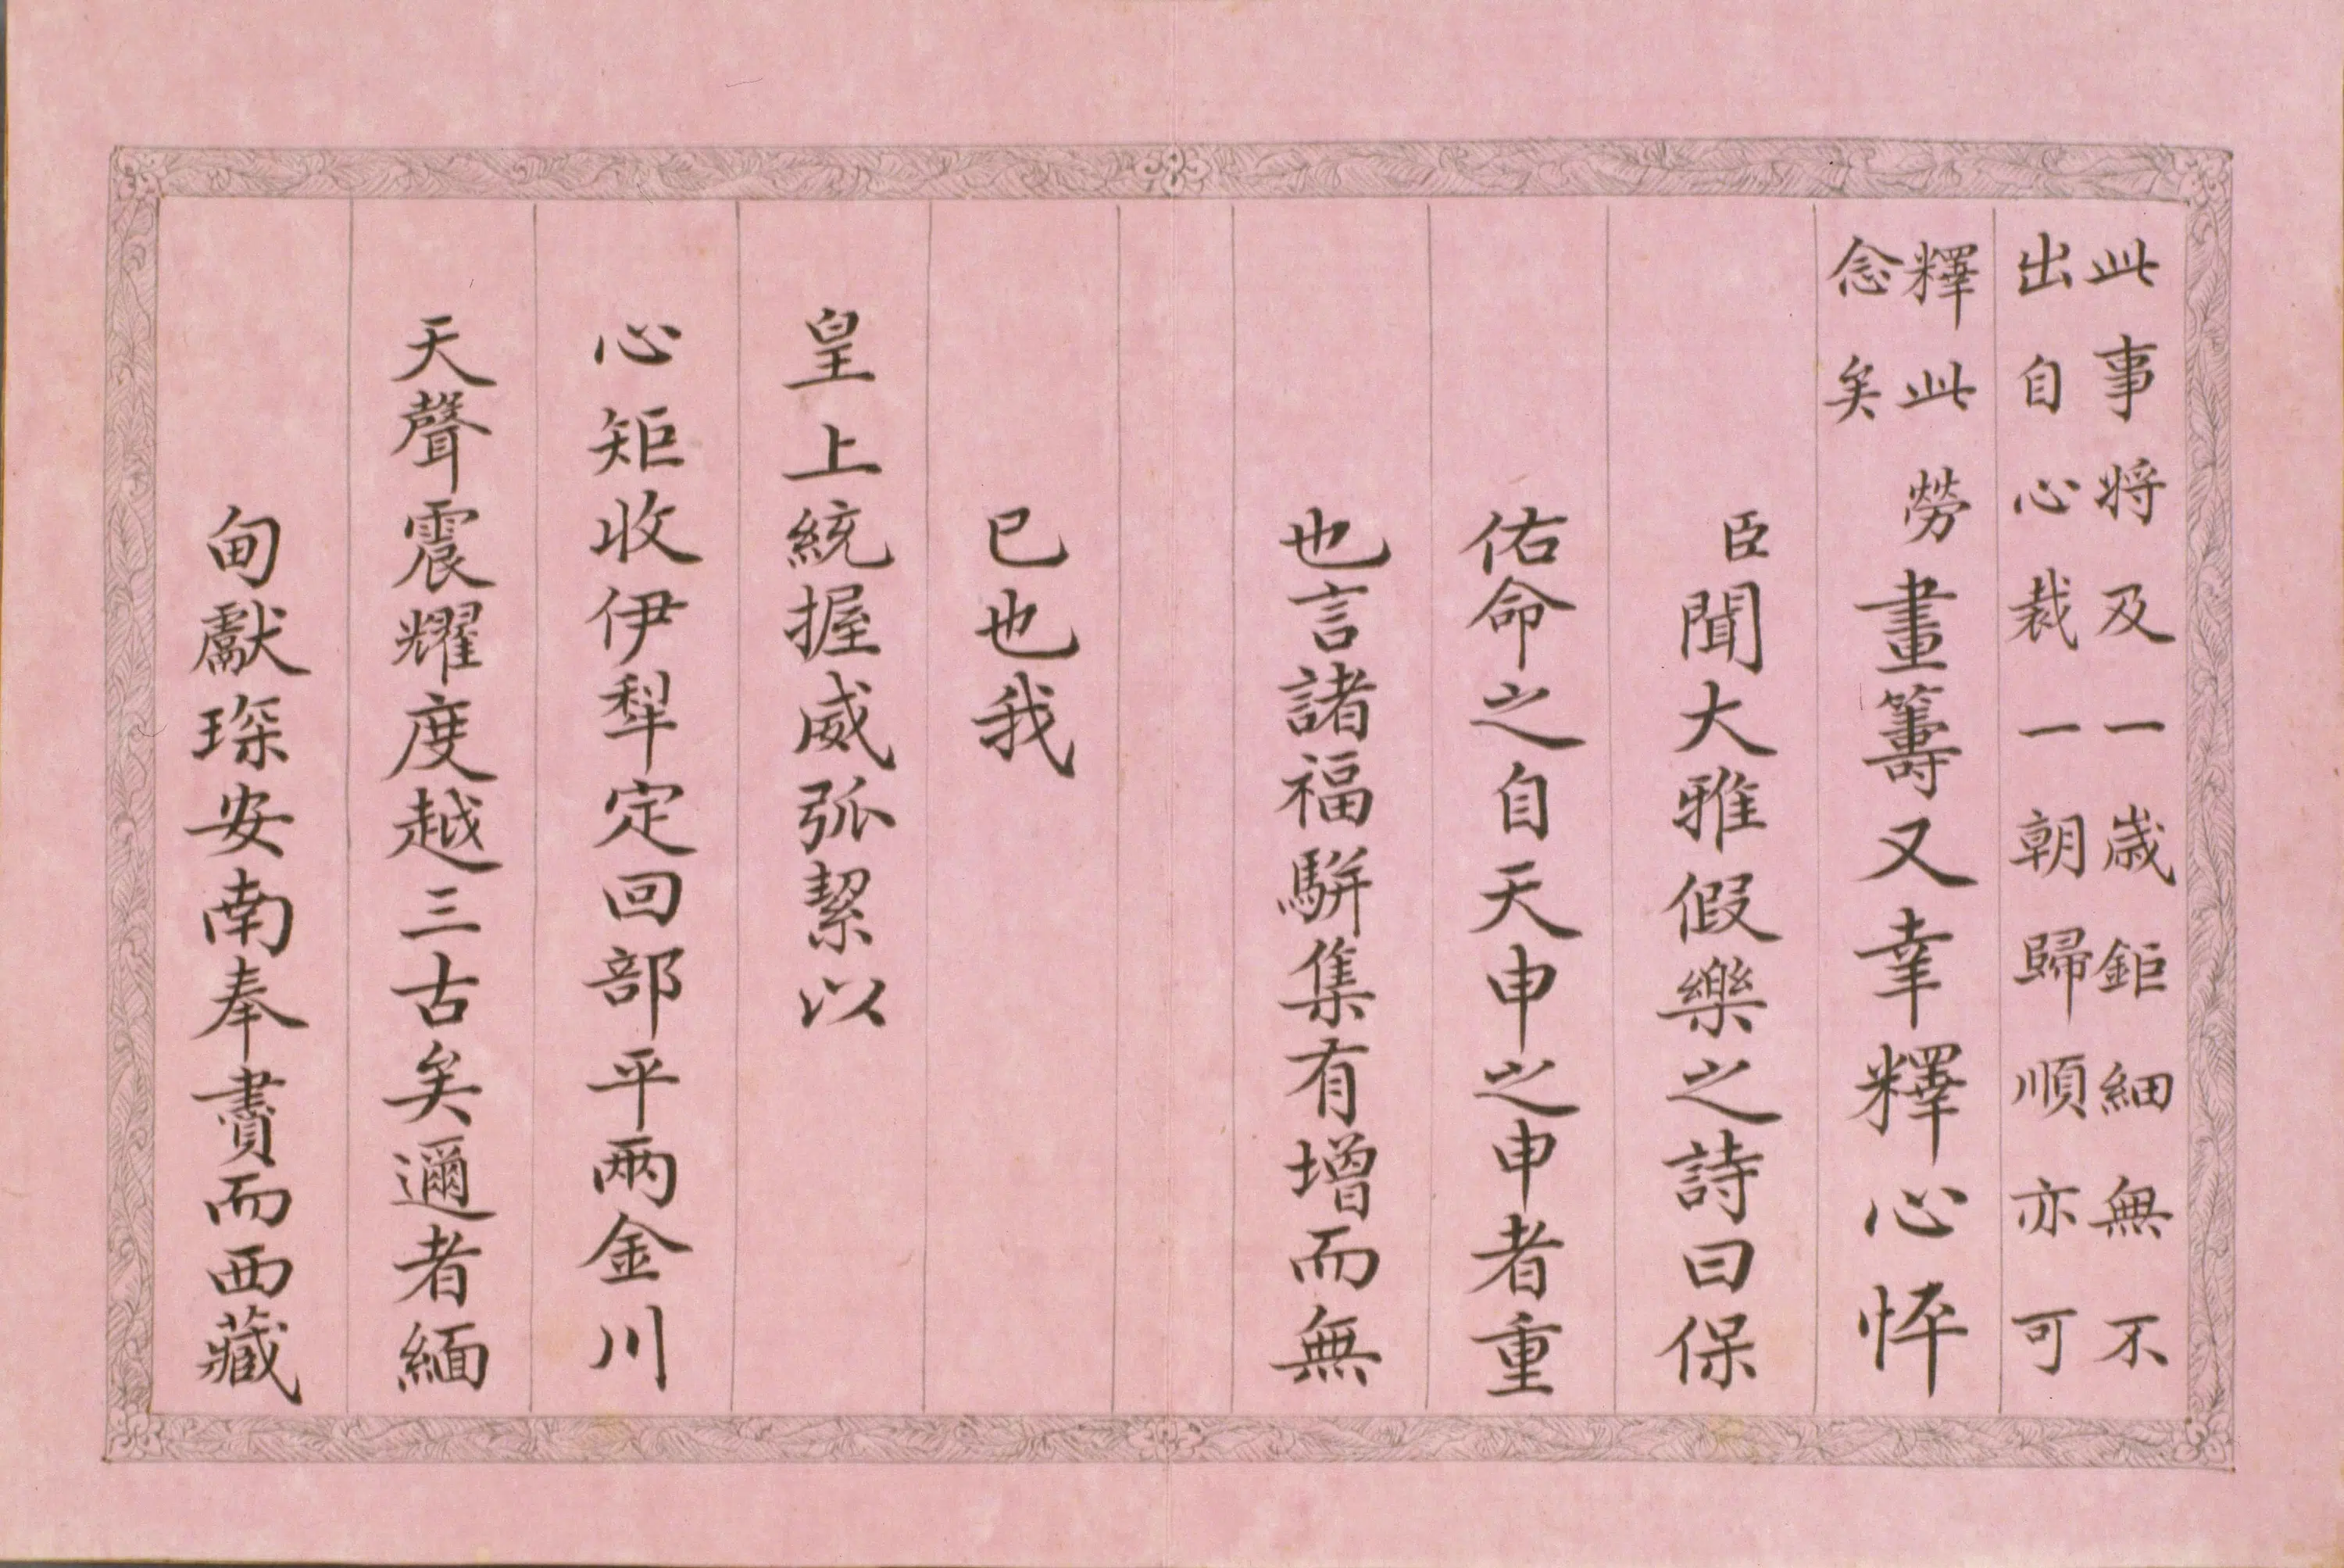 此事將及一歲鉅細無不
出自心裁一朝歸順亦可
釋此
念矣
勞畫籌又幸釋心怦
臣聞大雅假樂之詩曰保
佑命之自天申之申者重
也言諸福駢集有增而無
已也我
皇上統握威弧絜以
心矩收伊犂定回部平兩金川
天聲震耀度越三古矣邇者緬
甸獻琛安南奉賮而西藏